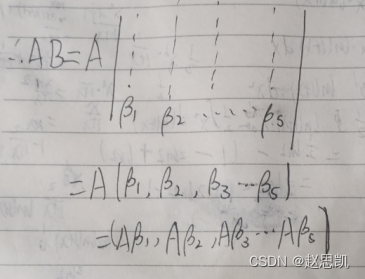 ∴AB=A | β₁ β₂ ...... βₛ |
=A(β₁, β₂, β₃ ... βₛ)
=(Aβ₁, Aβ₂, Aβ₃ ... Aβₛ)
CSDN @赵思凯